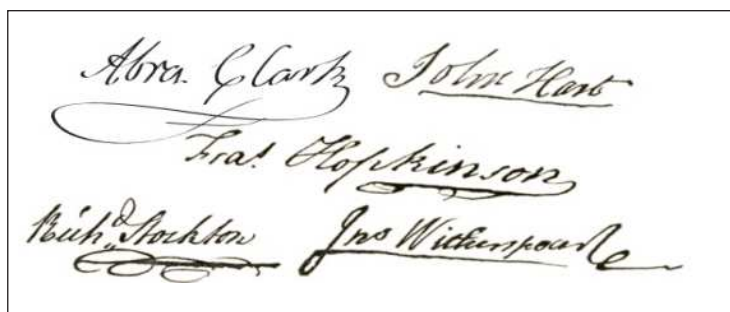 Abra. Clark John Hart
Fras. Hopkinson
Richd. Stockton Jno Witherspoon